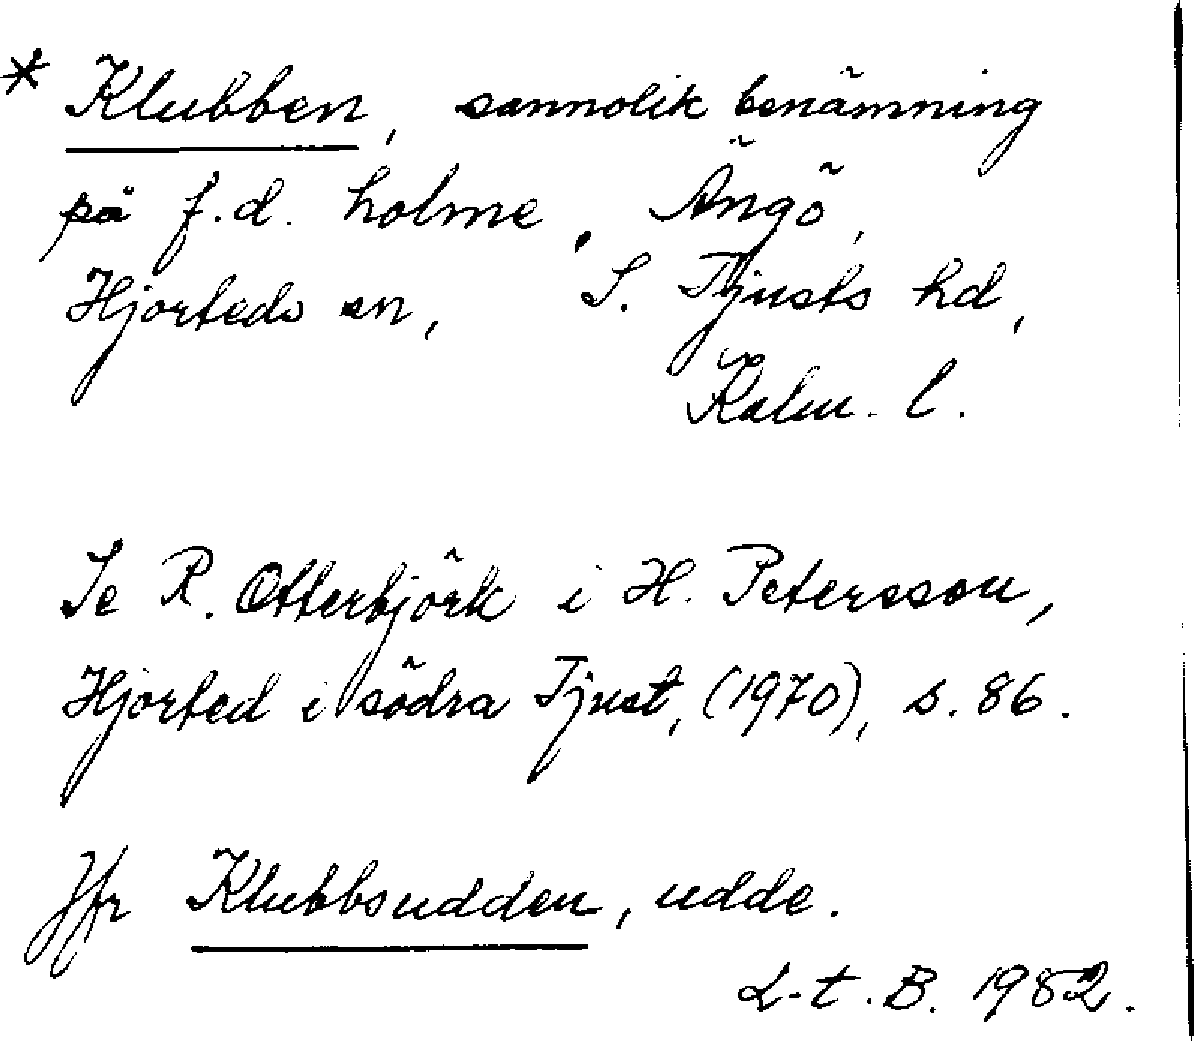 * Klubben, sannolik benämning
på f.d. holme, Ängö,
Hjorteds sn, S. Tjusts hd,
Kalm. l.
Se R. Otterbjörk i H. Petersson,
Hjorted i södra Tjust, (1970), s. 86.
Jfr Klubbsudden, udde.
L-t. B. 1982.